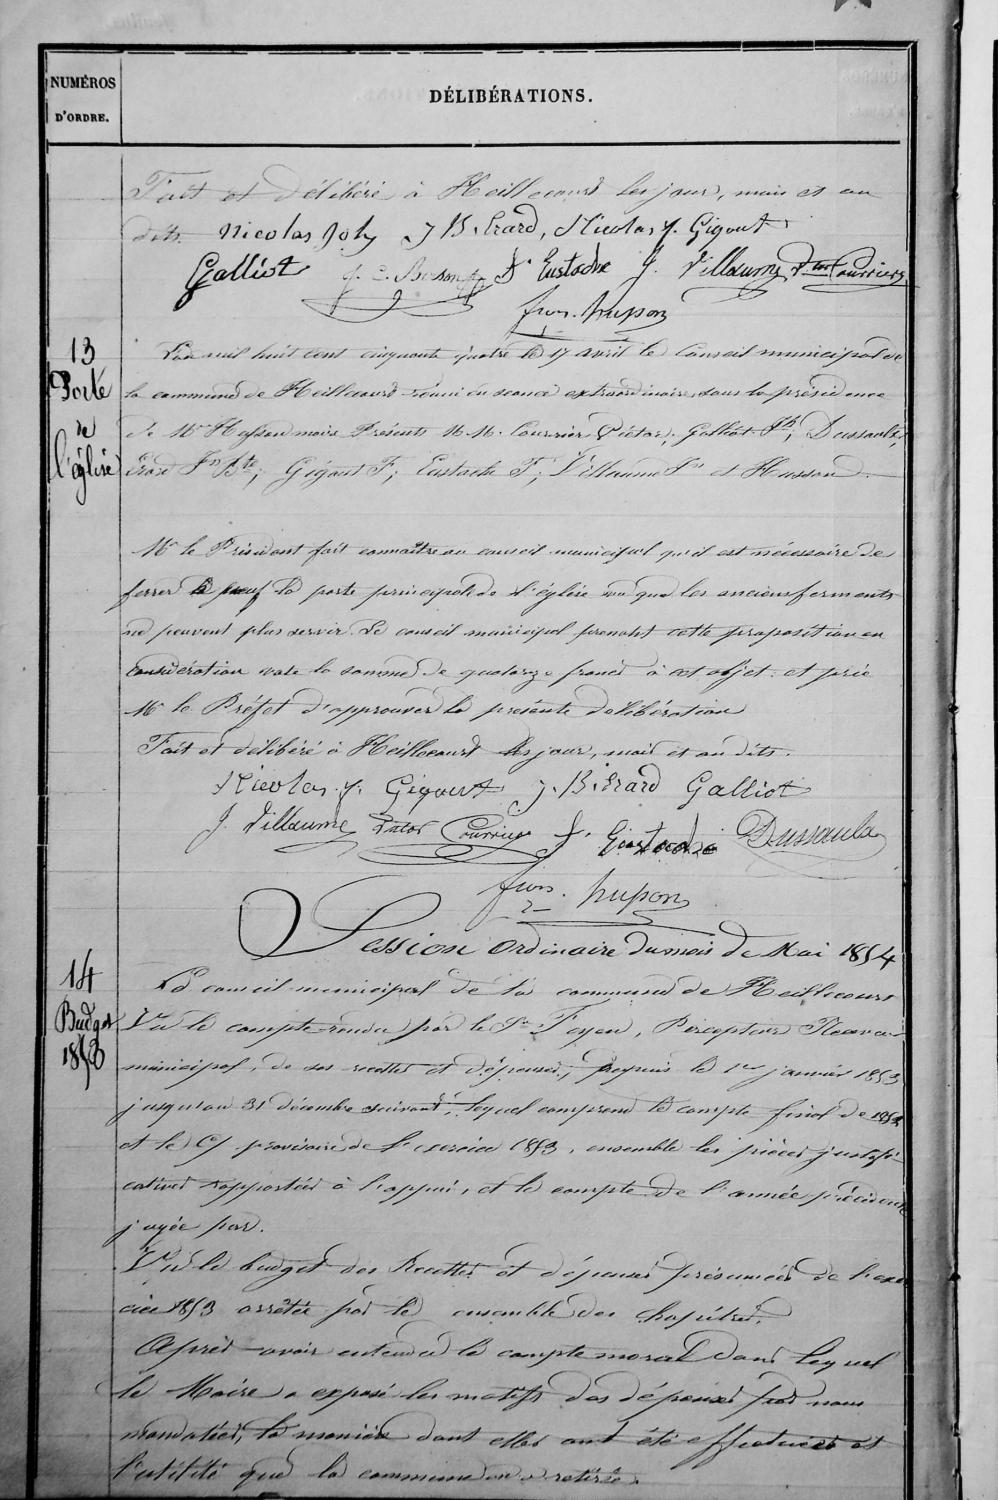 NUMÉROS
D'ORDRE.
DÉLIBÉRATIONS.
Fait et délibéré à Heillecourt les jour, mois et an
dits. Nicolas Joly J B. Erard, Nicolas f. Gigout
Galliot F. Eustache J. Villaume Victor Courrier
13
Porte
de
l'église
L'an mil huit cent cinquante quatre le 17 avril le Conseil municipal de
la commune de Heillecourt réuni en séance extraordinaire, sous la présidence
de Mr Husson maire Présents M.M. Courrier Victor, Galliot Jh; Dussaulx,
Erard Jn Bte; Gigout F; Eustache F; Villaume Jn et Husson
Mr le Président fait connaître au conseil municipal qu'il est nécessaire de
ferrer la porte principale de l'église vu que les anciens ferments
ne peuvent plus servir. Le conseil municipal prenant cette proposition en
considération vote la somme de quatorze francs à cet objet, et prie
Mr le Préfet d'approuver la présente délibération
Fait et délibéré à Heillecourt les jour, mois et an dits.
Nicolas. f. Gigout J. B. Erard Galliot
J. Villaume Victor Courrier F. Eustache Dussaulx
Session ordinaire du mois de Mai 1854
14
Budget
1853
Le conseil municipal de la commune de Heillecourt
Vu le compte rendu par le Sr Foyen, Percepteur Receveur
municipal, de ses recettes et dépenses, depuis le 1er janvier 1853
jusqu'au 31 décembre suivant, lequel comprend le compte final de 1852
et le Cte provisoire de l'exercice 1853, ensemble les pièces justifi
catives rapportées à l'appui, et le compte de l'année précédente
jugée par.
Vu le budget des Recettes et dépenses présumées de l'exer
cice 1853 arrêtée par le ensemble des chapitres.
Après avoir entendu le compte moral dans lequel
le Maire a exposé les motifs des dépenses par nous
mandatées, la manière dont elles ont été effectuées et
l'utilité que la commune en a retirée.